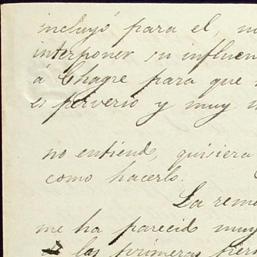 incluyó para el, no
interponer su influen
á Chagre para que
es perverso y muy
no entiendo, quisiera
como hacerlo.
La reme
me ha parecido muy
las primeras pers